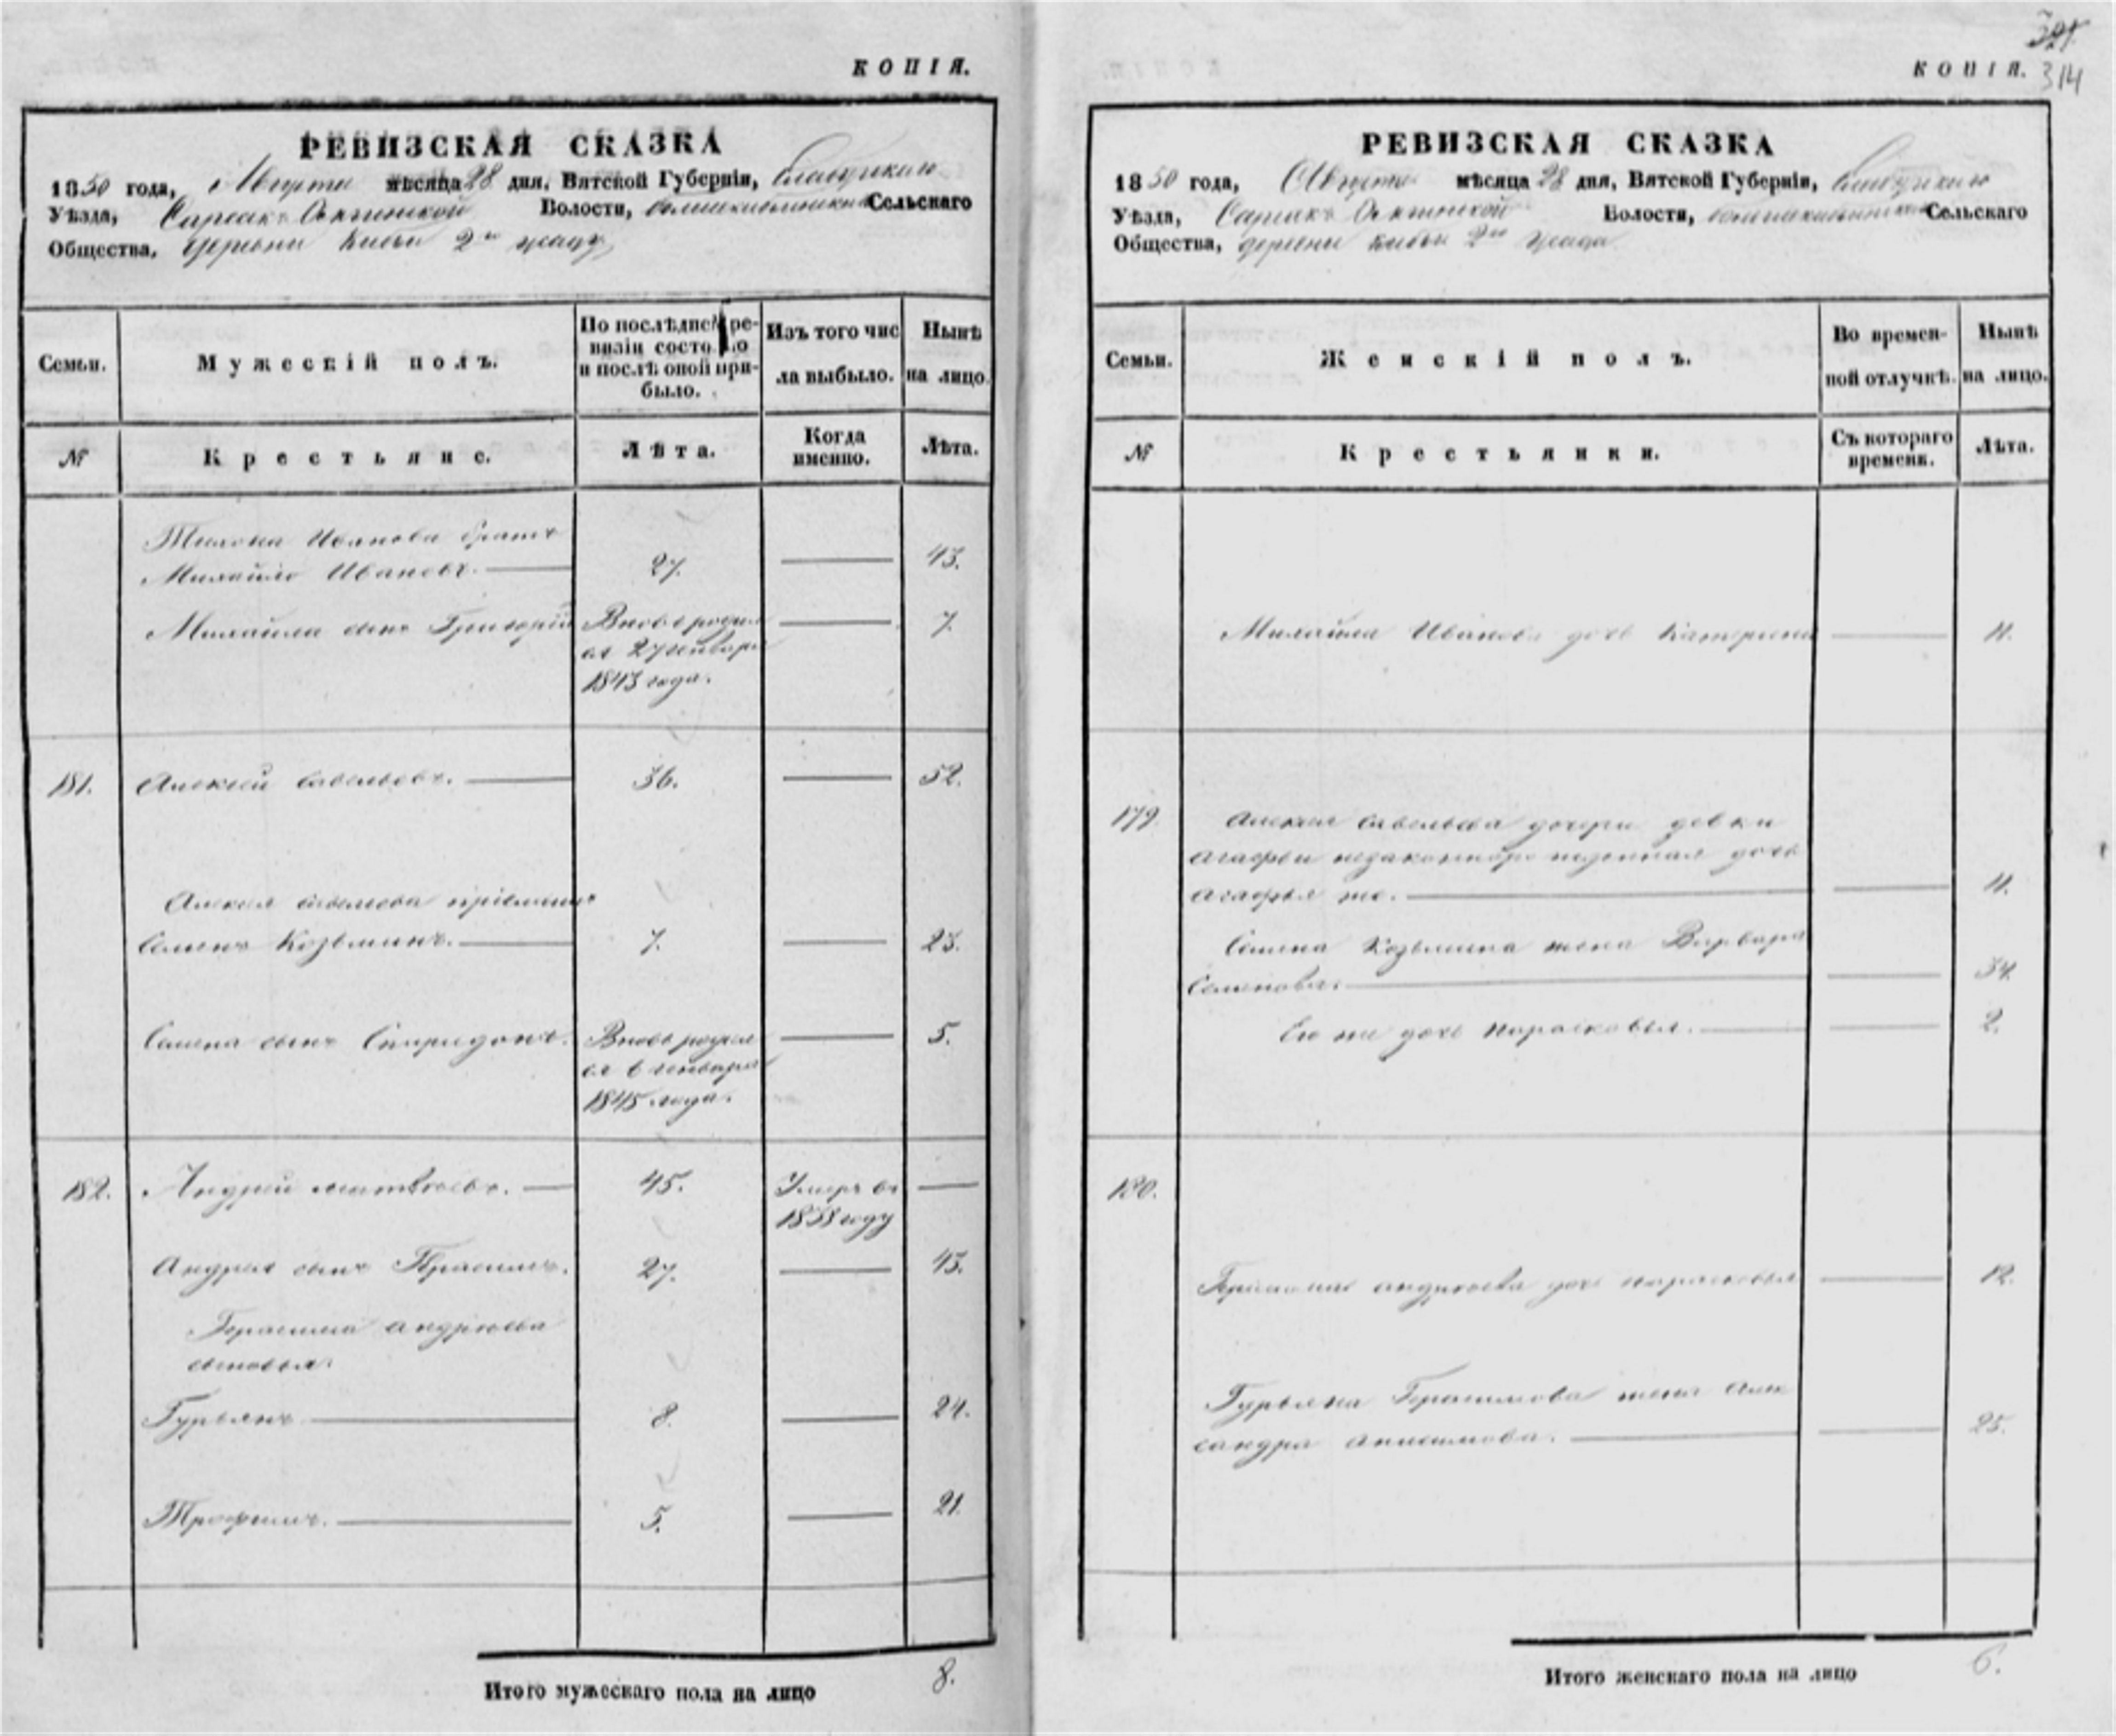 КОПІЯ.
РЕВИЗСКАЯ СКАЗКА
1850 года, Августа мѣсяца 28 дня, Вятской Губерніи,
Уѣзда, Волости, Сельскаго
Общества, деревни 2го
Семьи.
Мужескій полъ.
По послѣдней ре-
визіи состояло
и послѣ оной при-
было.
Изъ того чис
ла выбыло.
Нынѣ
на лицо.
№
Крестьяне.
Лѣта.
Когда
именно.
Лѣта.
Иванова братъ
Михайло Ивановъ. 27. 43.
Михайла сынъ Григорій Вновь родил 7.
ся 27 генваря
1843 года.
181. Алексей Савельевъ. 36. 52.
Алексея Савельева пріемышъ
Семенъ Козьминъ. 7. 23.
Семена сынъ Спиридонъ. Вновь родил 5.
ся 6 генваря
1845 года.
182. Андрей Матвѣевъ. 45. Умеръ въ
1838 году
Андрея сынъ Герасимъ. 27. 43.
Герасима Андреева
сыновья.
Гурьянъ 8. 24.
Трофимъ. 5. 21.
Итого мужескаго пола на лицо 8.
321
КОПІЯ. 314
РЕВИЗСКАЯ СКАЗКА
1850 года, Августа мѣсяца 28 дня, Вятской Губерніи,
Уѣзда, Волости, Сельскаго
Общества, деревни 2го
Семьи.
Женскій полъ.
Во времен-
ной отлучкѣ.
Нынѣ
на лицо.
№
Крестьянки.
Съ котораго
времени.
Лѣта.
Михайла Иванова дочь Катерина 11.
179. Алексея Савельева дочери девки
Агафьи дочь
Агафья же. 11.
Семена Козьмина жена Варвара
Семенова. 34.
Его же дочь Парасковья. 2.
180.
Герасима Андреева дочь Парасковья 12.
Гурьяна Герасимова жена Алек
сандра Анисимова. 25.
Итого женскаго пола на лицо 6.